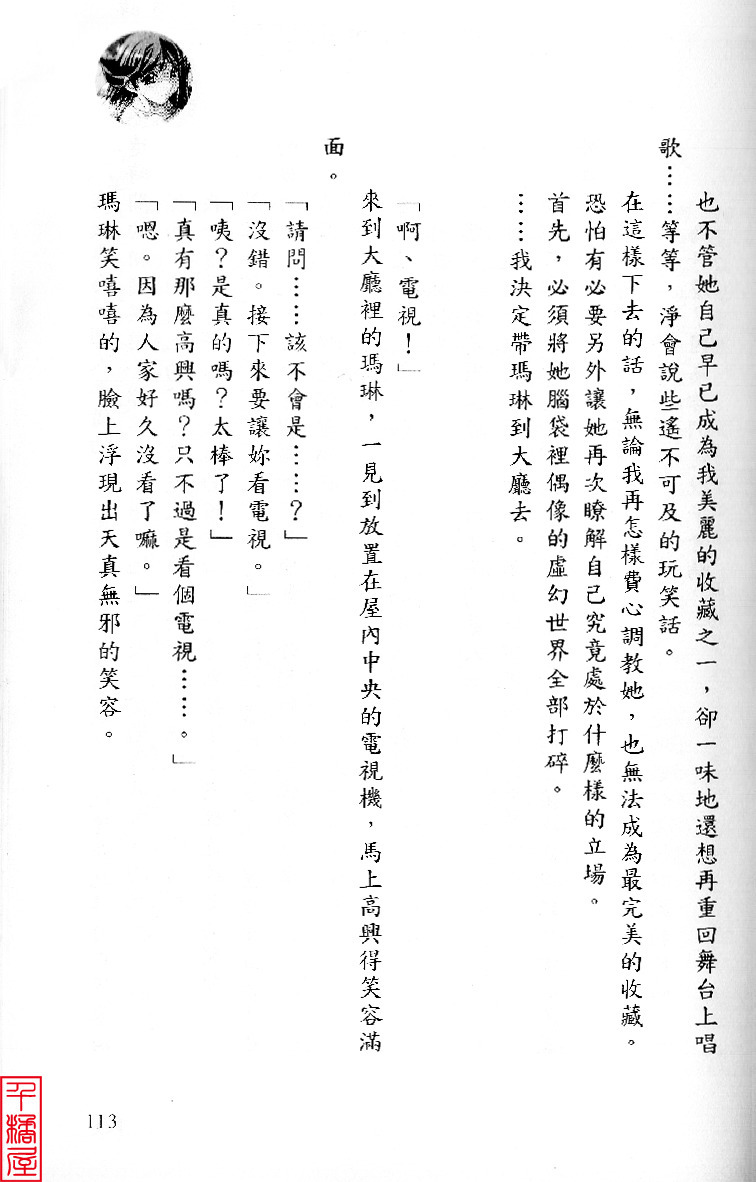 也不管她自己早已成為我美麗的收藏之一，卻一味地還想再重回舞台上唱
歌……等等，淨會說些遙不可及的玩笑話。
在這樣下去的話，無論我再怎樣費心調教她，也無法成為最完美的收藏。
恐怕有必要另外讓她再次瞭解自己究竟處於什麼樣的立場。
首先，必須將她腦袋裡偶像的虛幻世界全部打碎。
……我決定帶瑪琳到大廳去。
「啊、電視！」
來到大廳裡的瑪琳，一見到放置在屋內中央的電視機，馬上高興得笑容滿
面。
「請問……該不會是……？」
「沒錯。接下來要讓妳看電視。」
「咦？是真的嗎？太棒了！」
「真有那麼高興嗎？只不過是看個電視……。」
「嗯。因為人家好久沒看了嘛。」
瑪琳笑嘻嘻的，臉上浮現出天真無邪的笑容。
113
千橘屋